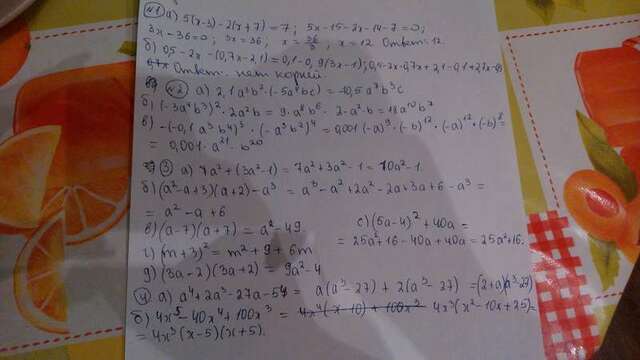 №1 а) 5(x-3)-2(x+7)=7; 5x-15-2x-14-7=0;
3x-36=0; 3x=36; x=36/3; x=12. Ответ: 12.
б) 0,5-2x-(0,7x-2,1)=0,1-0,9(3x-1);
Ответ: нет корней
№2 а) 2,1a²b²·(-5a⁶bc)=-10,5a⁸b³c
б) (-3a⁴b³)²·2a²b = 9·a⁸b⁶·2·a²·b = 18a¹⁰b⁷
в) -(-0,1a³b⁴)³·(-a³b²)⁴=0,001(-a)⁹·(-b)¹²·(-a)¹²·(-b)⁸=
= 0,001·a²¹·b²⁰
3 а) 7a²+(3a²-1)=7a²+3a²-1=10a²-1.
б) (a²-a+3)(a+2)-a³ = a³-a²+2a²-2a+3a+6-a³ =
= a²-a+6
в) (a-7)(a+7)=a²-49 с) (5a-4)²+40a=
г) (m+3)²=m²+9+6m = 25a²+16-40a+40a=25a²+16.
д) (3a-2)(3a+2)=9a²-4
4 а) a⁴+2a³-27a-54 = a(a³-27)+2(a³-27)=(2+a)(a³-27)
б) 4x⁵-40x⁴+100x³ = 4x⁴(x-10)+100x³ 4x³(x²-10x+25)=
=4x³(x-5)(x+5).